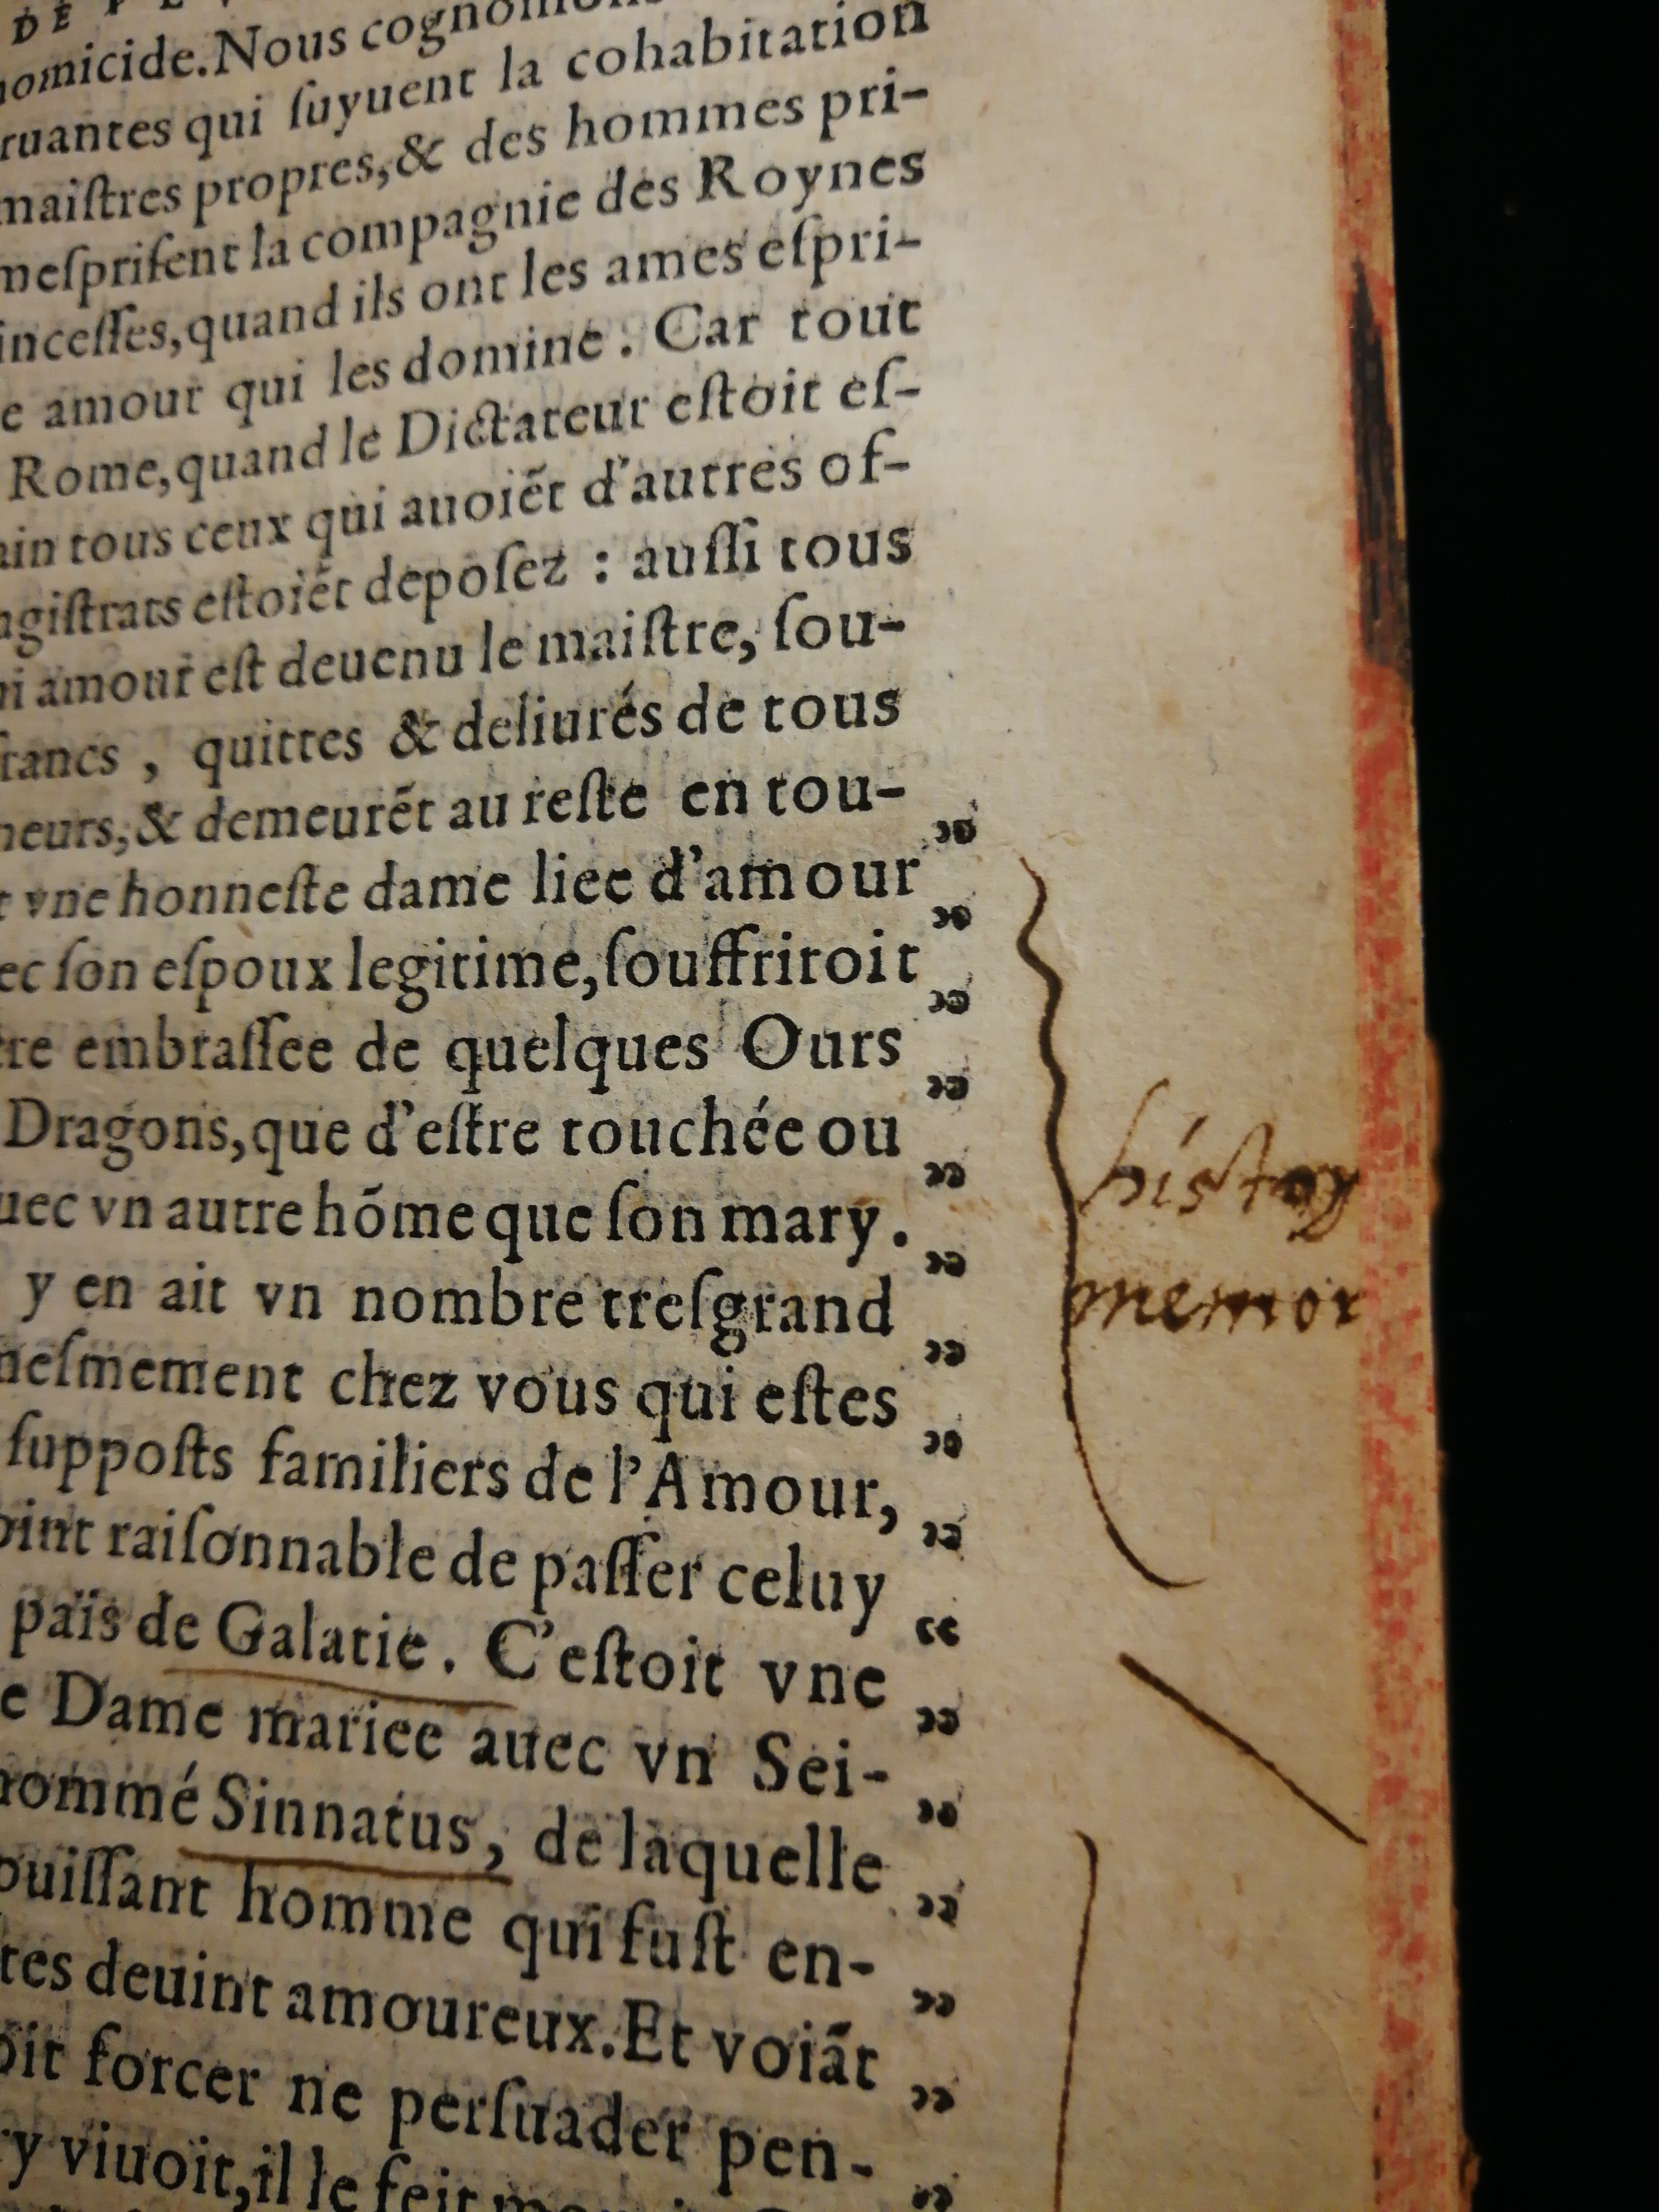 homicide. Nous cognoiſſons
ruantes qui ſuyuent la cohabitation
maiſtres propres, & des hommes pri-
meſpriſent la compagnie des Roynes
inceſſes, quand ils ont les ames eſpri-
e amour qui les domine. Car tout
Rome, quand le Dictateur eſtoit eſ-
ain tous ceux qui auoiẽt d'autres of-
agiſtrats eſtoiẽt depoſez : auſſi tous
ui amour eſt deuenu le maiſtre, ſou-
francs, quittes & deliurés de tous
neurs, & demeurẽt au reſte en tou-
t vne honneſte dame liee d'amour ”
ec ſon eſpoux legitime, ſouffriroit ”
tre embraſſee de quelques Ours ”
Dragons, que d'eſtre touchée ou ”
uec vn autre hõme que ſon mary. ”
y en ait vn nombre treſgrand ”
meſmement chez vous qui eſtes ”
ſuppoſts familiers de l'Amour, ”
oint raiſonnable de paſſer celuy ”
païs de Galatie. C'eſtoit vne “
e Dame mariee auec vn Sei- ”
nommé Sinnatus, de laquelle ”
puiſſant homme qui fuſt en- ”
tes deuint amoureux. Et voiãt ”
oit forcer ne perſuader pen- ”
y viuoit, il le feit ”
memor